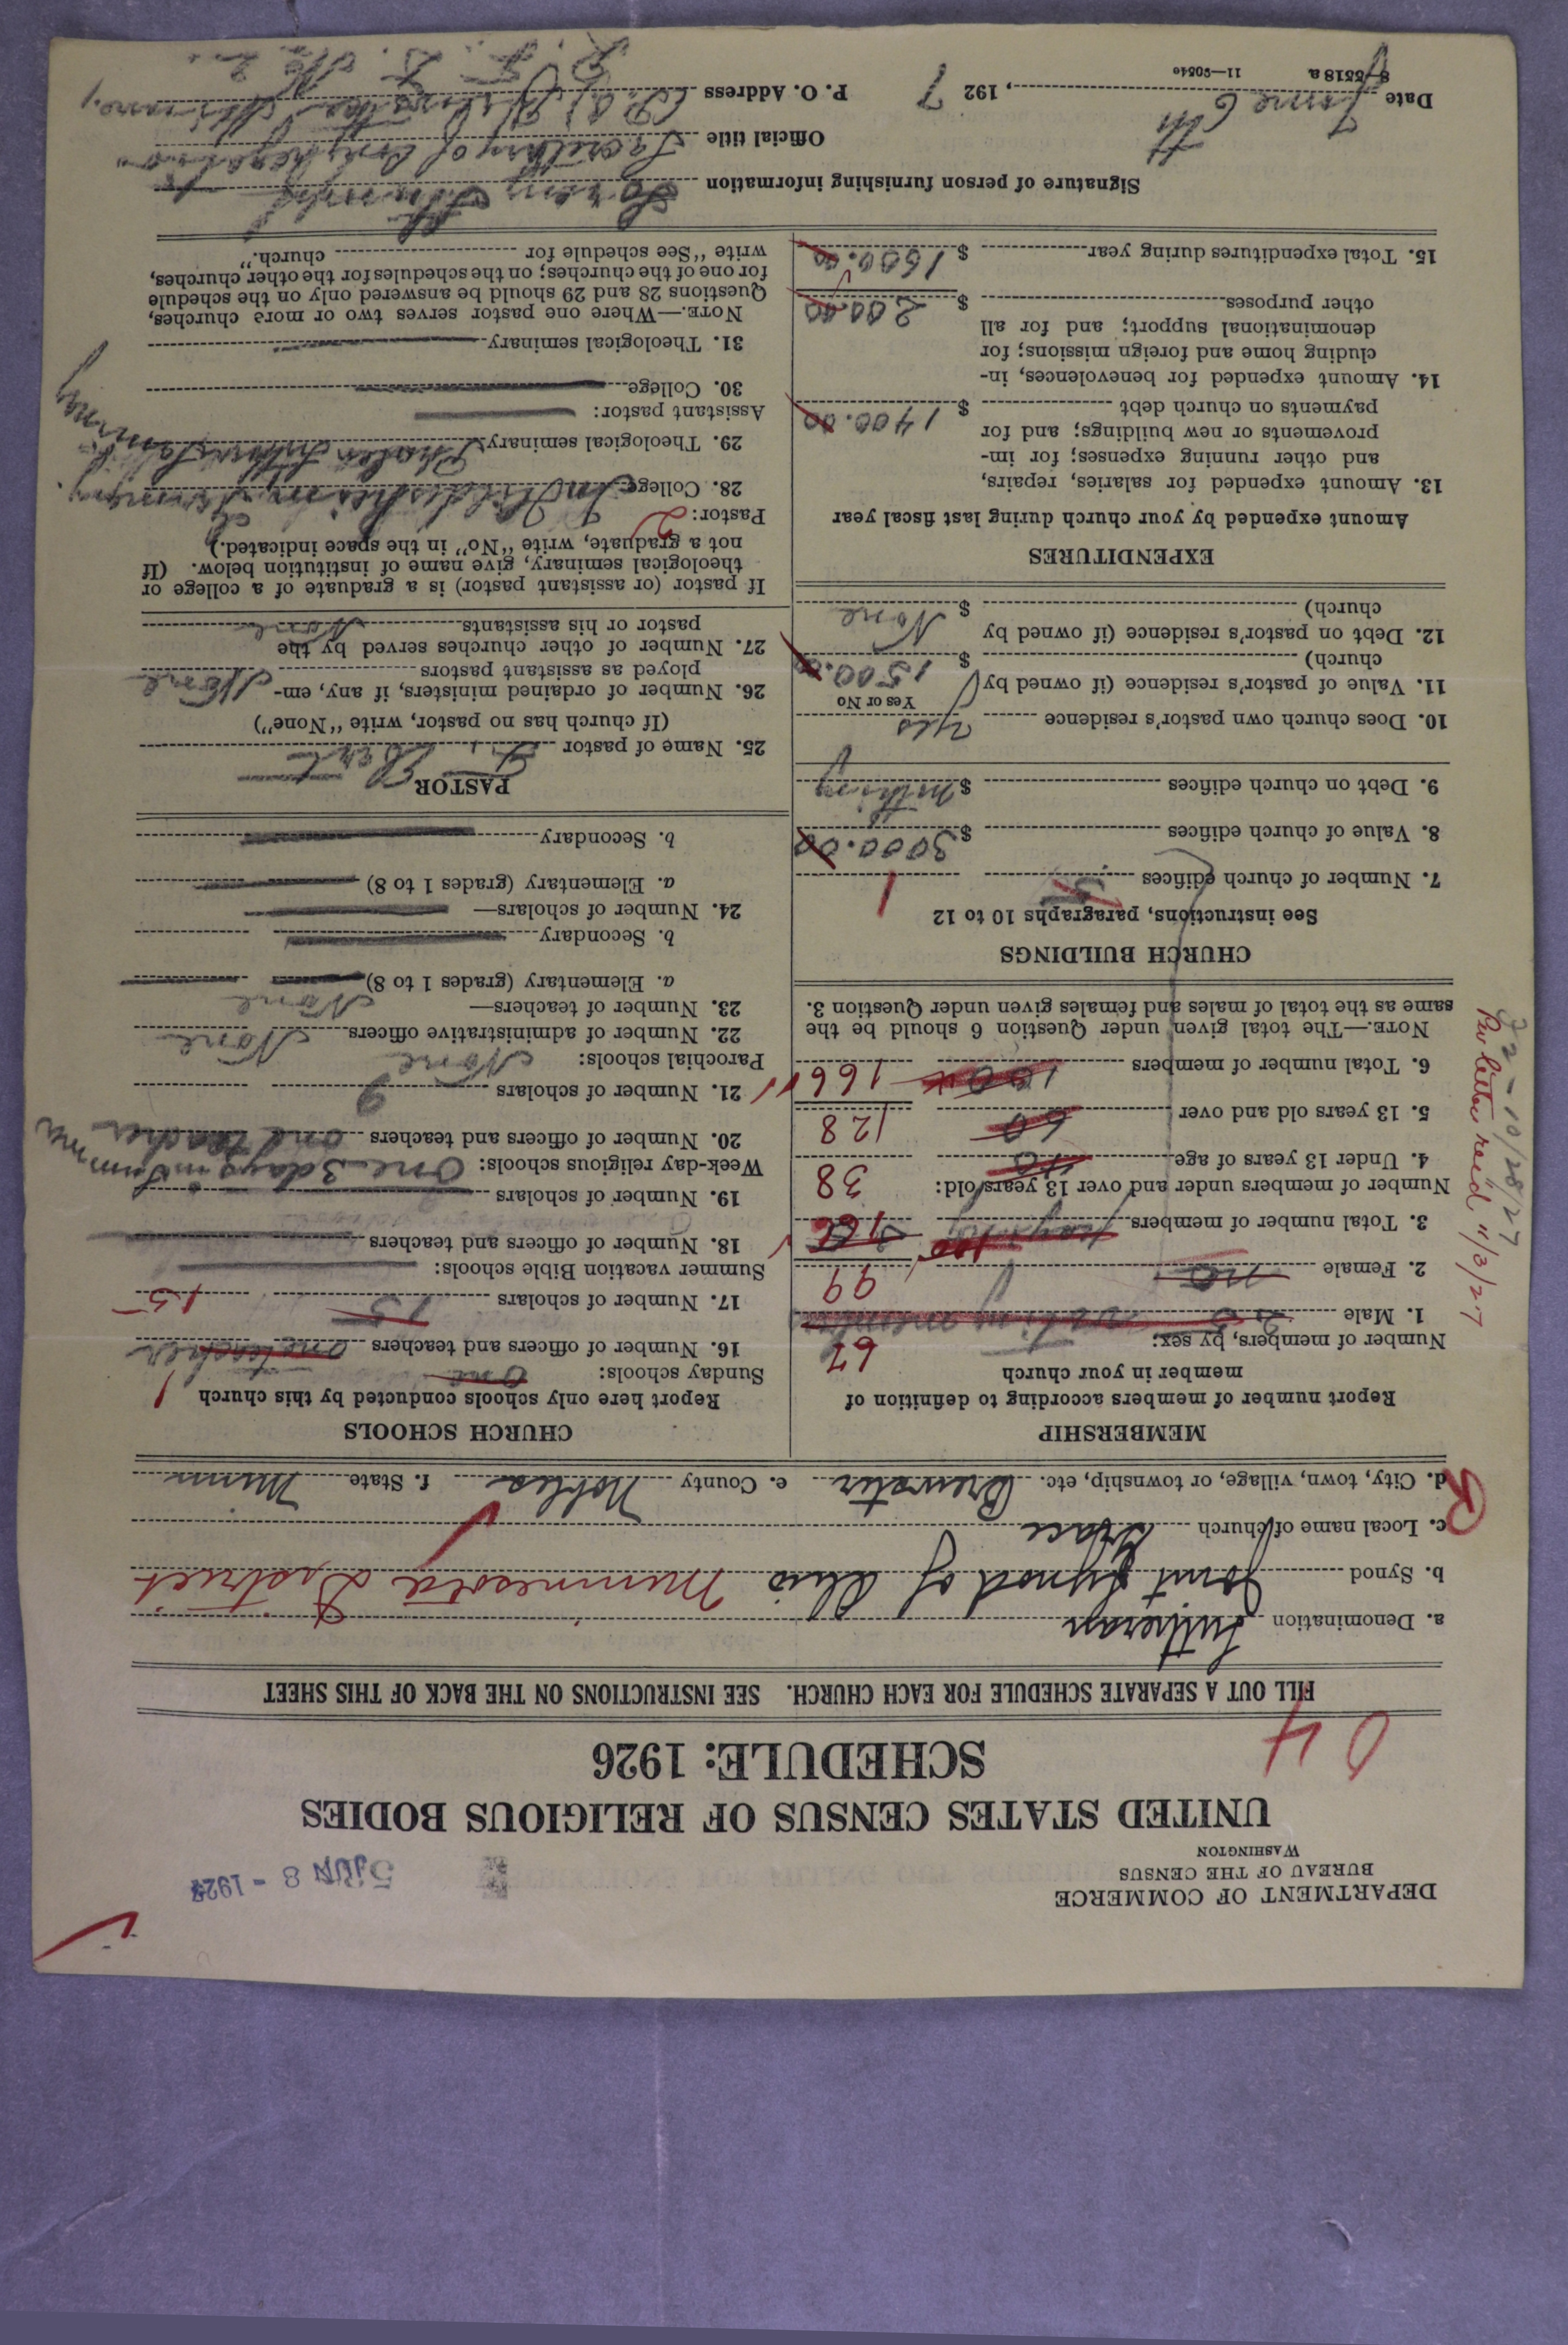 DEPARTMENT OF COMMERCE
BUREAU OF THE CENSUS
WASHINGTON
5 JUN 8 - 1927
UNITED STATES CENSUS OF RELIGIOUS BODIES
SCHEDULE: 1926
04
FILL OUT A SEPARATE SCHEDULE FOR EACH CHURCH. SEE INSTRUCTIONS ON THE BACK OF THIS SHEET
a. Denomination Lutheran
b. Synod Joint Synod of Ohio Minnesota District
c. Local name of church Grace
d. City, town, village, or township, etc. Brewster e. County Nobles f. State Minn
MEMBERSHIP
Report number of members according to definition of
member in your church
Number of members, by sex:
67
1. Male 20 voting members
2. Female no 99
3. Total number of members 100 166
Number of members under and over 13 years old:
38
4. Under 13 years of age 40
5. 13 years old and over 60 128
6. Total number of members 100 166
NOTE.—The total given under Question 6 should be the
same as the total of males and females given under Question 3.
J2-10/28/27
Per letter rec'd 11/3/27
CHURCH BUILDINGS
See instructions, paragraphs 10 to 12
7. Number of church edifices 1
8. Value of church edifices $ 3000.00
9. Debt on church edifices $ nothing
10. Does church own pastor's residence yes
Yes or No
11. Value of pastor's residence (if owned by
church) $ 1500.00
12. Debt on pastor's residence (if owned by
church) $ None
EXPENDITURES
Amount expended by your church during last fiscal year
13. Amount expended for salaries, repairs,
and other running expenses; for im-
provements or new buildings; and for
payments on church debt $ 1400.00
14. Amount expended for benevolences, in-
cluding home and foreign missions; for
denominational support; and for all
other purposes $ 200.00
15. Total expenditures during year $ 1600.00
CHURCH SCHOOLS
Report here only schools conducted by this church
Sunday schools: One 1
16. Number of officers and teachers one teacher
17. Number of scholars 15 15
Summer vacation Bible schools:
18. Number of officers and teachers
19. Number of scholars
Week-day religious schools: One 3 days in Summer
20. Number of officers and teachers one teacher
21. Number of scholars 9
Parochial schools: None
22. Number of administrative officers None
23. Number of teachers— None
a. Elementary (grades 1 to 8)
b. Secondary
24. Number of scholars—
a. Elementary (grades 1 to 8)
b. Secondary
PASTOR
25. Name of pastor
(If church has no pastor, write "None")
26. Number of ordained ministers, if any, em-
ployed as assistant pastors None
27. Number of other churches served by the
pastor or his assistants None
If pastor (or assistant pastor) is a graduate of a college or
theological seminary, give name of institution below. (If
not a graduate, write "No" in the space indicated.)
Pastor: 2
28. College Germany
29. Theological seminary Luther Seminary
Assistant pastor:
30. College
31. Theological seminary
NOTE.—Where one pastor serves two or more churches,
Questions 28 and 29 should be answered only on the schedule
for one of the churches; on the schedules for the other churches,
write "See schedule for church."
Signature of person furnishing information
Official title Secretary of Congregation
Date June 6 th, 1927 P. O. Address Minn.,
R. F. D. No 2.
8-5518 a 11—9054e